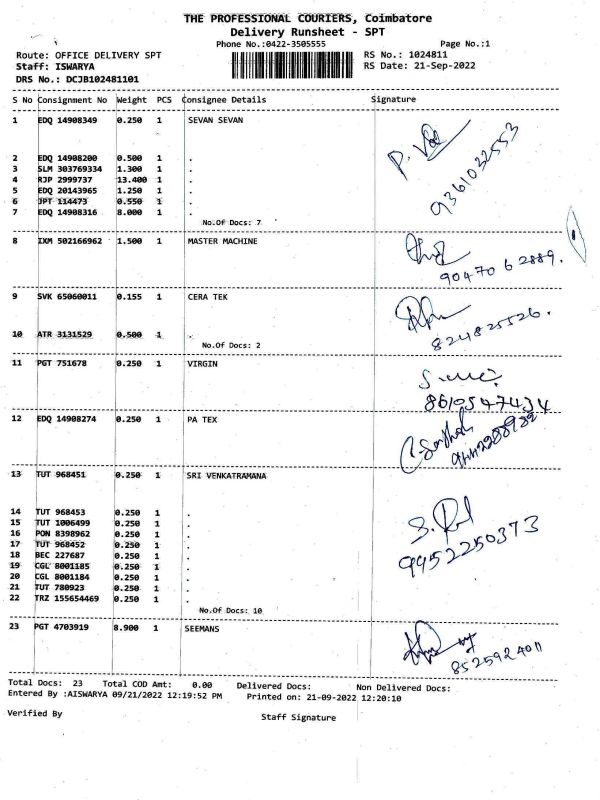 THE PROFESSIONAL COURIERS, Coimbatore
Delivery Runsheet - SPT
Phone No.:0422-3505555 Page No.:1
Route: OFFICE DELIVERY SPT RS No.: 1024811
Staff: ISWARYA RS Date: 21-Sep-2022
DRS No.: DCJB102481101
S No Consignment No Weight PCS Consignee Details Signature
1 EDQ 14908349 0.250 1 SEVAN SEVAN
9361032553
2 EDQ 14908200 0.500 1 .
3 SLM 303769334 1.300 1 .
4 RJP 2999737 13.400 1 .
5 EDQ 20143965 1.250 1 .
6 JPT 114473 0.550 1 .
7 EDQ 14908316 8.000 1 .
No.Of Docs: 7
8 IXM 502166962 1.500 1 MASTER MACHINE
90470 62889.
9 SVK 65060011 0.155 1 CERA TEK
824825526.
10 ATR 3131529 0.500 1 .
No.Of Docs: 2
11 PGT 751678 0.250 1 VIRGIN
8610547434
12 EDQ 14908274 0.250 1 PA TEX
13 TUT 968451 0.250 1 SRI VENKATRAMANA
14 TUT 968453 0.250 1 .
15 TUT 1006499 0.250 1 .
16 PON 8398962 0.250 1 .
17 TUT 968452 0.250 1 .
18 BEC 227687 0.250 1 .
19 CGL 8001185 0.250 1 .
20 CGL 8001184 0.250 1 .
21 TUT 780923 0.250 1 .
22 TRZ 155654469 0.250 1 .
9952250373
No.Of Docs: 10
23 PGT 4703919 8.900 1 SEEMANS
8525924011
Total Docs: 23 Total COD Amt: 0.00 Delivered Docs: Non Delivered Docs:
Entered By :AISWARYA 09/21/2022 12:19:52 PM Printed on: 21-09-2022 12:20:10
Verified By Staff Signature